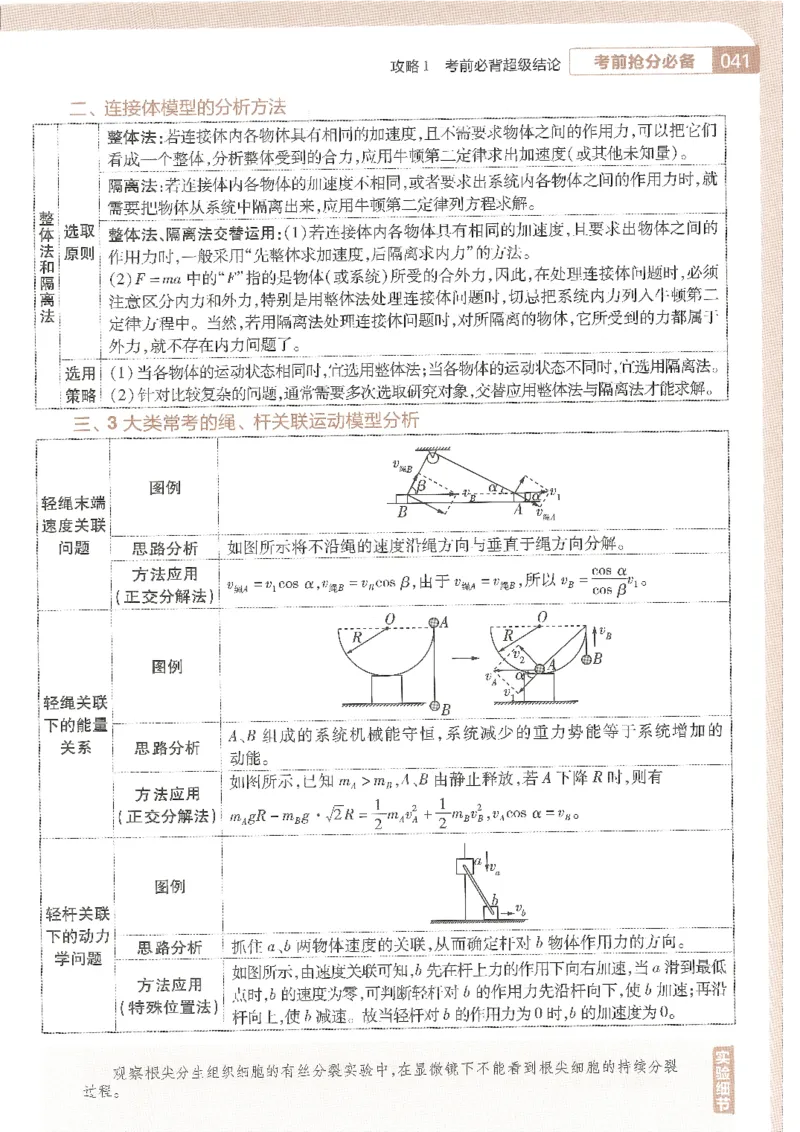 攻略1 考前必背超级结论 考前抢分必备 041
二、连接体模型的分析方法
整体法和隔离法
选取原则
整体法:若连接体内各物体具有相同的加速度,且不需要求物体之间的作用力,可以把它们
看成一个整体,分析整体受到的合力,应用牛顿第二定律求出加速度(或其他未知量)。
隔离法:若连接体内各物体的加速度不相同,或者要求出系统内各物体之间的作用力时,就
需要把物体从系统中隔离出来,应用牛顿第二定律列方程求解。
整体法、隔离法交替运用:(1)若连接体内各物体具有相同的加速度,且要求出物体之间的
作用力时,一般采用“先整体求加速度,后隔离求内力”的方法。
(2)F=ma中的“F”指的是物体(或系统)所受的合外力,因此,在处理连接体问题时,必须
注意区分内力和外力,特别是用整体法处理连接体问题时,切忌把系统内力列入牛顿第二
定律方程中。当然,若用隔离法处理连接体问题时,对所隔离的物体,它所受到的力都属于
外力,就不存在内力问题了。
选用策略
(1)当各物体的运动状态相同时,宜选用整体法;当各物体的运动状态不同时,宜选用隔离法。
(2)针对比较复杂的问题,通常需要多次选取研究对象,交替应用整体法与隔离法才能求解。
三、3大类常考的绳、杆关联运动模型分析
轻绳末端
速度关联
问题
图例
v绳B β vB α α v1
B A v绳A
思路分析 如图所示将不沿绳的速度沿绳方向与垂直于绳方向分解。
方法应用
(正交分解法)
v绳A=v1cos α,v绳B=vBcos β,由于v绳A=v绳B,所以vB=cos α/cos β v1。
轻绳关联
下的能量
关系
图例
O A R B
O R vB v2 A B vA α v1
思路分析
A、B组成的系统机械能守恒,系统减少的重力势能等于系统增加的
动能。
方法应用
(正交分解法)
如图所示,已知mA>mB,A、B由静止释放,若A下降R时,则有
mAgR-mBg·√2R=1/2mAvA²+1/2mBvB²,vAcos α=vB。
轻杆关联
下的动力
学问题
图例
a va
b vb
思路分析 抓住a、b两物体速度的关联,从而确定杆对b物体作用力的方向。
方法应用
(特殊位置法)
如图所示,由速度关联可知,b先在杆上力的作用下向右加速,当a滑到最低
点时,b的速度为零,可判断轻杆对b的作用力先沿杆向下,使b加速;再沿
杆向上,使b减速。故当轻杆对b的作用力为0时,b的加速度为0。
观察根尖分生组织细胞的有丝分裂实验中,在显微镜下不能看到根尖细胞的持续分裂
过程。
实验细节